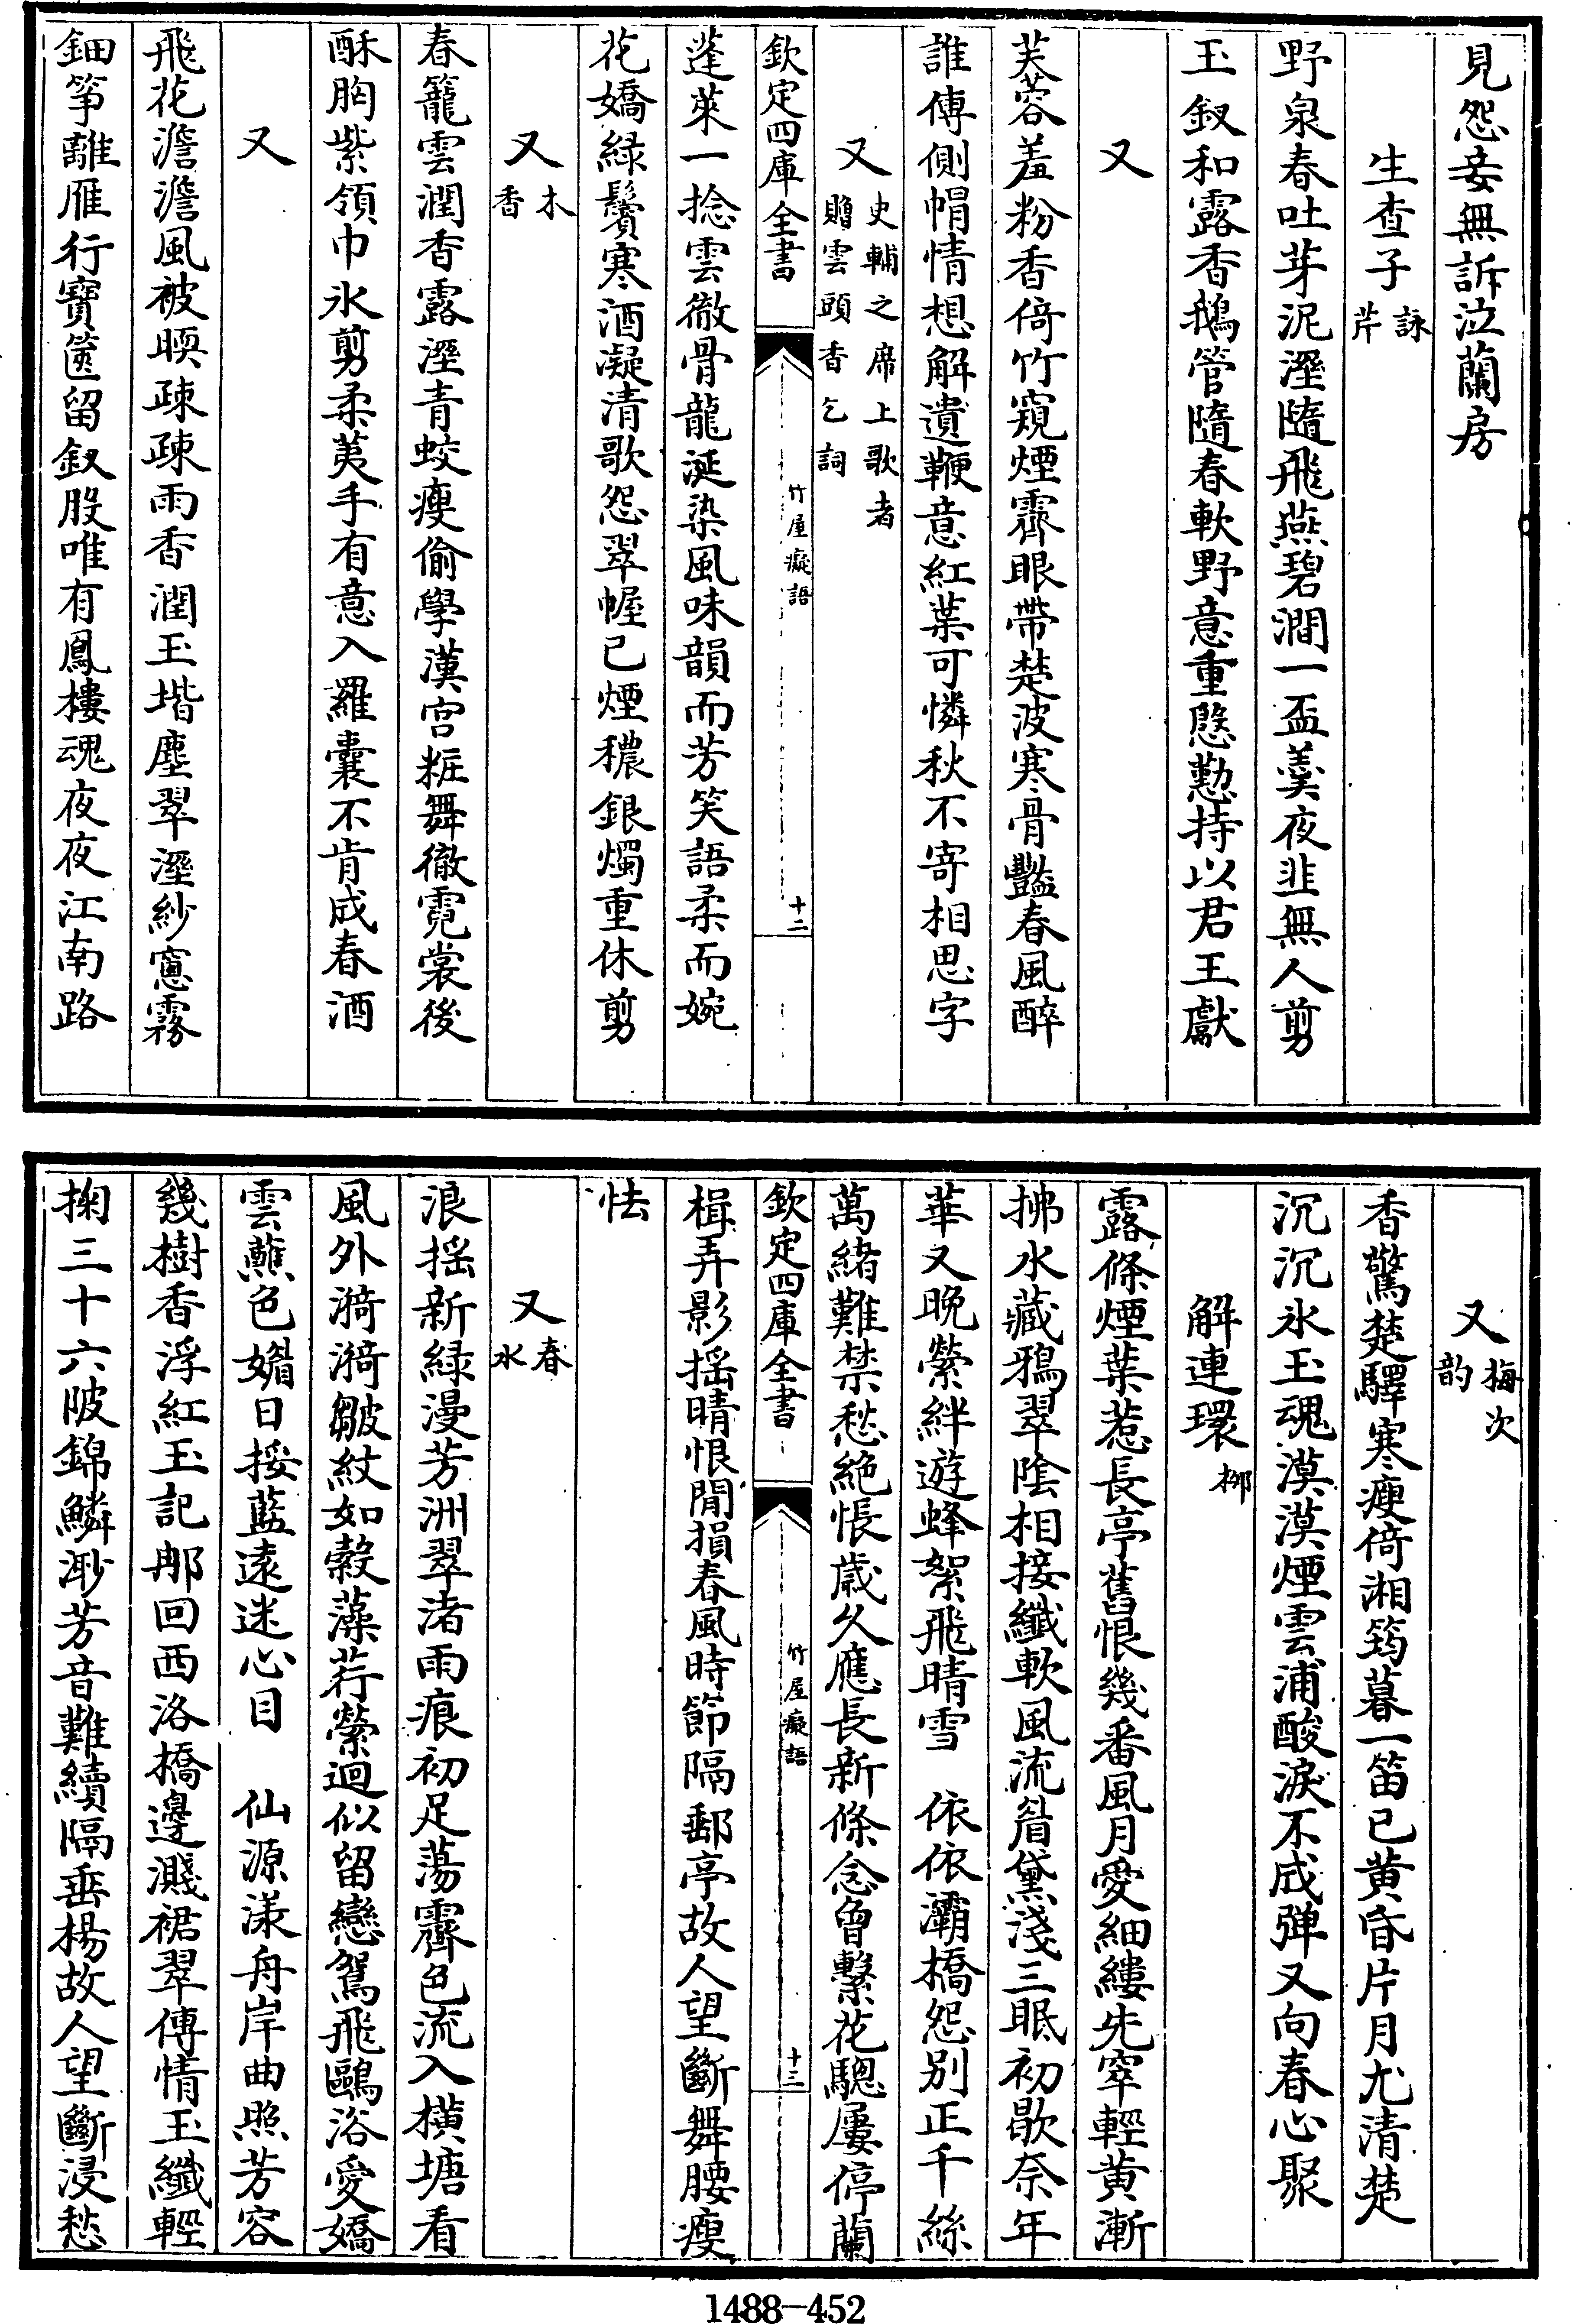 見怨妾無訴泣蘭房
生查子詠芹
野泉春吐芽泥溼隨飛燕碧澗一盃羹夜韭無人剪
玉釵和露香鵝管隨春軟野意重慇懃持以君王獻
又
芙蓉羞粉香倚竹窺煙霽眼帶楚波寒骨豔春風醉
誰傳側帽情想解遺鞭意紅葉可憐秋不寄相思字
又史輔之席上歌者贈雲頭香乞詞
欽定四庫全書 竹屋癡語 十二
蓬萊一捻雲徹骨龍涎染風味韻而芳笑語柔而婉
花嬌綠鬢寒酒凝清歌怨翠幄已煙穠銀燭重休剪
又木香
春籠雲潤香露溼青蛟瘦偷學漢宮粧舞徹霓裳後
酥胸紫領巾氷剪柔荑手有意入羅囊不肯成春酒
又
飛花澹澹風被暎疎疎雨香潤玉堦塵翠溼紗窻霧
鈿箏離雁行寶篋留釵股唯有鳳樓魂夜夜江南路
又梅次韵
香驚楚驛寒瘦倚湘筠暮一笛已黃昏片月尤清楚
沉沉氷玉魂漠漠煙雲浦酸淚不成彈又向春心聚
解連環栁
露條煙葉惹長亭舊恨幾番風月愛細縷先窣輕黃漸
拂水藏鴉翠陰相接纖軟風流眉黛淺三眠初歇奈年
華又晚縈絆遊蜂絮飛晴雪 依依灞橋怨别正千絲
萬緒難禁愁絶悵歲久應長新條念曾繫花驄屢停蘭
欽定四庫全書 竹屋癡語 十三
楫弄影搖晴恨閒損春風時節隔郵亭故人望斷舞腰瘦
怯
又春水
浪搖新緑漫芳洲翠渚雨痕初足蕩霽色流入橫塘看
風外漪漪皺紋如縠藻荇縈迴似留戀鴛飛鷗浴愛嬌
雲蘸色媚日挼藍遠迷心目 仙源漾舟岸曲照芳容
幾樹香浮紅玉記那回西洛橋邊濺裙翠傳情玉纖輕
掬三十六陂錦鱗渺芳音難續隔垂楊故人望斷浸愁
1488—452